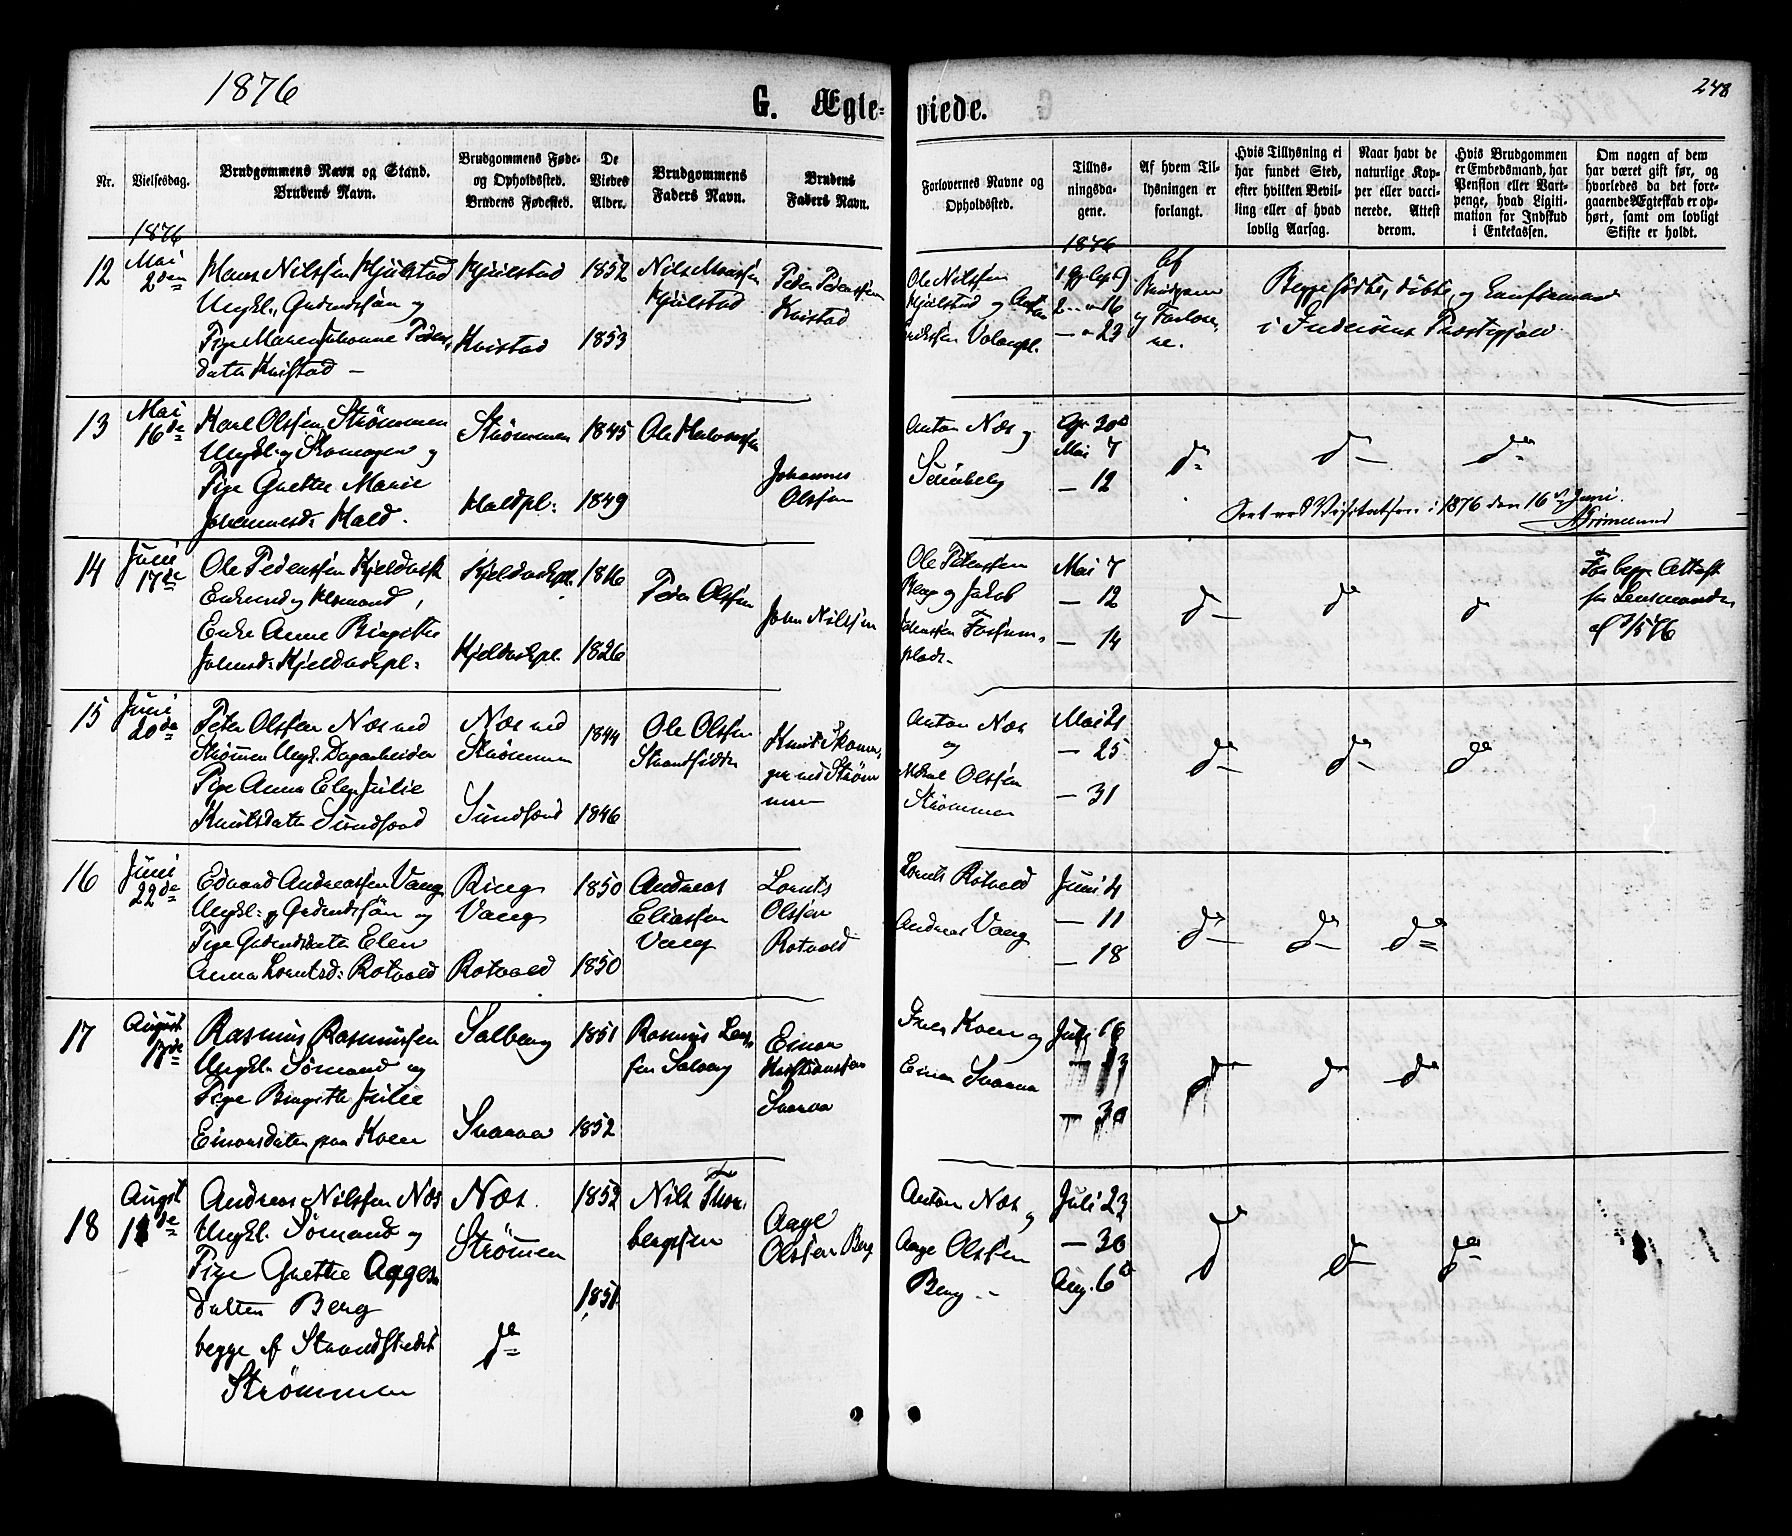 1876
G. Ægte=
viede.
248
Nr.
Vielsesdag.
Brudgommens Navn og Stand.
Brudens Navn.
Brudgommens Føde-
og Opholdssted.
Brudens Fødested.
De
Viedes
Alder.
Brudgommens
Faders Navn.
Brudens
Faders Navn.
Forlovernes Navne og
Opholdssted.
Tillys-
ningsda-
gene.
Af hvem Til-
lysningen er
forlangt.
Hvis Tillysning ei
har fundet Sted,
efter hvilken Bevil-
ling eller af hvad
lovlig Aarsag.
Naar havt de
naturlige Kop-
per eller vacci-
nerede. Attest
derom.
Hvis Brudgommen
er Embedsmand, har
Pension eller Vart-
penge, hvad Ligiti-
mation for Indskud
i Enkekassen.
Om nogen af dem
har været gift før, og
hvorledes da det fore-
gaaende Ægteskab er op-
hørt, samt om lovligt
Skifte er holdt.
1876
12
Mai
2den
Hans Nilssen Hjulstad
Ungkl., Grdmdssøn og
Pige Maren Johanne Peders
datter Kvistad —
Hjulstad
Kvistad
1852
1853
Hjulstad
Peder Pederssen
Kvistad
Ole Nilssen
Hjulstad og
1876
— 23
Af
Brudgom
og Forlove
re.
Begge fødte, døbte og
i Inderøens Præstegjæld
13
Mai
16de
Karl Olssen Strømmen
Ungkl. og Skomager og
Pige Grethe Marie
Johannesd: Hald.
Strømmen
Haldpl:
1845
1849
Ole Halvorssen
Johannes
Olssen
Anton Næs og
Apr 30
Mai 7
— 12
do
do
do
Seet ved Visitatsen i 1876 den 16de Juni.
14
Juni
17de
Ole Pederssen Kjeldvik
Enkemd og Husmand,
Enke Anne Birgitte
Johnsd:
1816
1826
Peder Olssen
John Nilssen
Ole Peterssen
Berg og Jakob
plads.
Mai 7
— 12
— 14
do
do
do
For begge Attest
fra Lensmanden
15
Juni
20de
Peter Olssen Næs ved
Strømmen Ungk. Dagarbeider
Pige Anna Elen Julie
Knutsdatter Sundsand
Næs ved
Strømmen
Sundsand
1844
1846
Ole Olssen
Knut Skoma,
ger ved Strøm
men
Anton Næs
og
Olssen
Strømmen
Mai 21
— 25
— 31
do
do
do
16
Juni
22de
Edvard Andreassen Vang
Ungkl: og Grdmdssøn og
Pige Grdmdsdatter Elen
Anna Lorntsd: Rotvold
Vang
Rotvold
1850
1850
Andreas
Eliassen
Vang
Lornts
Olssen
Rotvold
Lornts Rotvold
Andreas Vang
Juni 4
— 11
— 18
do
do
do
17
August
Rasmus Rasmussen
Ungkl. Sømand og
Pige Birgitte Julie
Einarsdatter paa Koen
Salberg
Svarva
1851
1852
Rasmus Lars,
sen Salberg
Einar
Kristianssen
Svarva
Koen og
Einar Svarva
Juli 16
— 30
do
do
do
18
August
Andreas Nilssen Næs
Ungkl. Sømand og
Pige Grethe Aages,
datter Berg
begge af Strandstedet
Strømmen
Næs.
Strømmen
do
1852
1851
Nils Thor
bergssen
Aage
Olssen Berg
Anton Næs og
Aage Olssen
Berg. —
Juli 23
— 30
Aug. 6
do
do
do